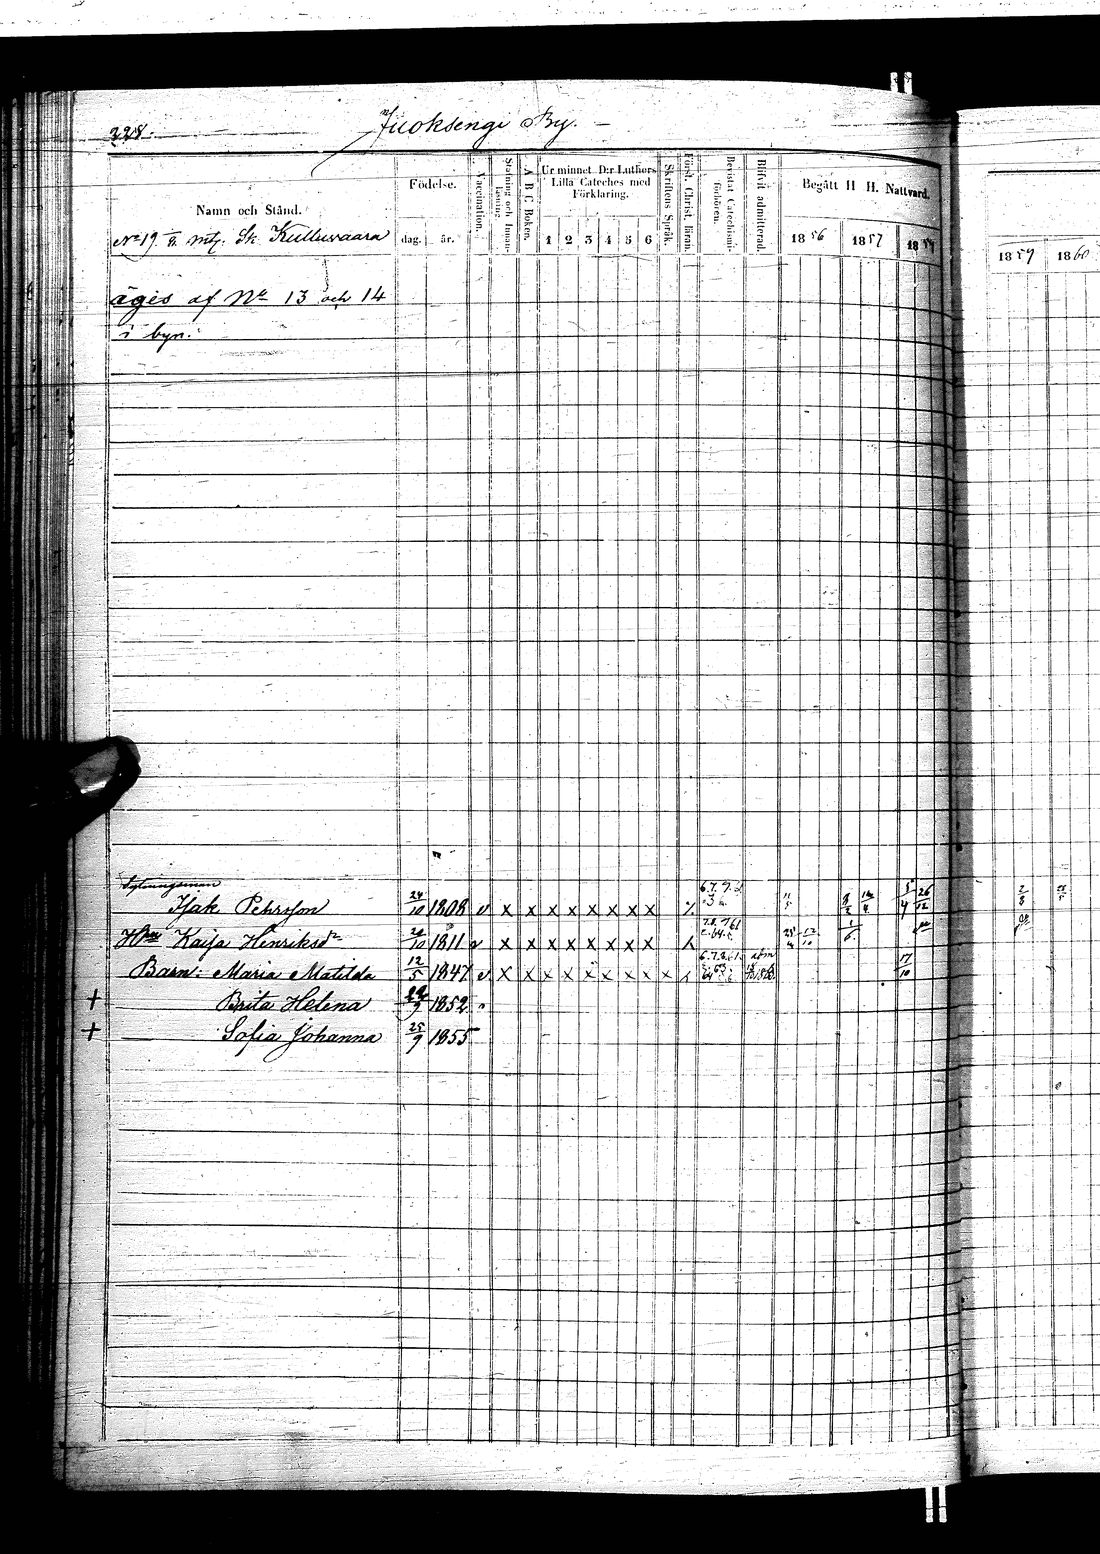 328.
Juoksengi By.
Namn och Stånd.
Födelse.
dag. år.
Vaccination.
Stafning och Innan-läsning.
A B C Boken.
Ur minnet D:r Luthers
Lilla Cateches med
Förklaring.
1 2 3 4 5 6
Skriftens Språk.
Först. Christ. läran.
Bevistat Catechismi-förhören.
Blifvit admitterad.
Begått H H. Nattvard.
1856 1857 1858
1859 1860
No 19 1/8 mtl. Sk. Kulluvaara
äges af No 13 och 14
i byn.
Sytningsman
Isak Pehrsson 24/10 1808 v x x x x x x x x
Hu Kaisa Henriksdr 24/10 1811 v x x x x x x x x
Barn: Maria Matilda 12/5 1847 v x x x x x x x x x 17/10
+ Brita Helena 1852
+ Sofia Johanna 25/9 1855